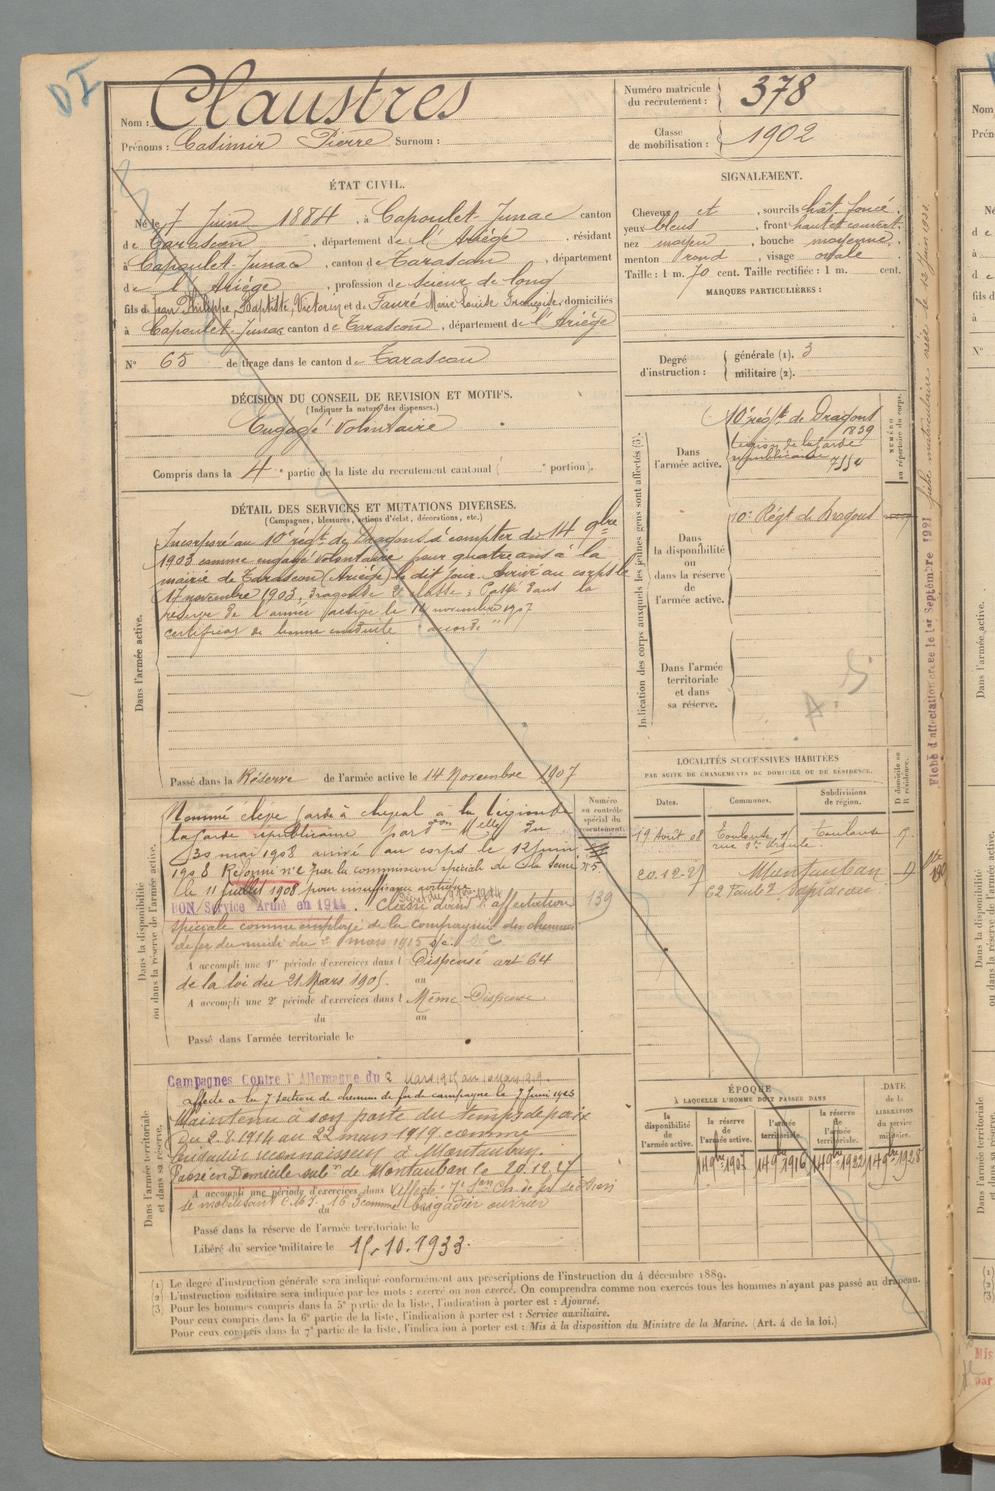 DI
Nom : Claustres
Prénoms : Casimir Pierre Surnom :
Numéro matricule du recrutement : 378
Classe de mobilisation : 1902
ÉTAT CIVIL.
Né le 7 Juin 1884, à Capoulet-Junac canton
de Tarascon, département de l'Ariège, résidant
à Capoulet-Junac, canton de Tarascon, département
de l'Ariège, profession de scieur de long
fils de Jean Philippe, Baptiste, Victorin et de Fauré Marie Louise Françoise, domiciliés
à Capoulet-Junac canton de Tarascon, département de l'Ariège
N° 65 de tirage dans le canton de Tarascon
SIGNALEMENT.
Cheveux et, sourcils chât. foncé.
yeux bleus, front haut et couvert.
nez moyen, bouche moyenne.
menton rond, visage ovale
Taille : 1 m. 70 cent. Taille rectifiée : 1 m. cent.
MARQUES PARTICULIÈRES :
Degré d'instruction : générale (1). 3
militaire (2).
DÉCISION DU CONSEIL DE REVISION ET MOTIFS.
(Indiquer la nature des dispenses.)
Engagé Volontaire
Compris dans la 4e partie de la liste du recrutement cantonal ( portion).
DÉTAIL DES SERVICES ET MUTATIONS DIVERSES.
(Campagnes, blessures, actions d'éclat, décorations, etc.)
Dans l'armée active.
Incorporé au 10e régt de Dragons à compter du 14 9bre
1903 comme engagé volontaire pour quatre ans à la
mairie de Tarascon (Ariège) le dit jour. Arrivé au corps le
17 novembre 1903, Dragon de 2e classe. Passé dans la
réserve de l'armée active le 14 novembre 1907
certificat de bonne conduite "accordé"
Passé dans la Réserve de l'armée active le 14 Novembre 1907
Indication des corps auxquels les jeunes gens sont affectés (3).
NUMÉRO au répertoire du corps.
Dans l'armée active.
10e régt de Dragons
1839
Légion de la Garde
républicaine 7554
Dans la disponibilité ou dans la réserve de l'armée active.
10e Régt de Dragons
Dans l'armée territoriale et dans sa réserve.
Fiche d'affectation créée le 1er Septembre 1921
LOCALITÉS SUCCESSIVES HABITÉES
PAR SUITE DE CHANGEMENTS DE DOMICILE OU DE RÉSIDENCE.
Dates. Communes. Subdivisions de région. D domicile ou R résidence.
19 Août 08 Toulouse Toulouse
rue Ste Ursule
20.12.27 Montauban D
62
Dans la disponibilité ou dans la réserve de l'armée active.
Numéro au contrôle spécial du recrutement.
Nommé élève garde à cheval à la légion de
la Garde républicaine par don Melle du
30 mai 1908 arrivé au corps le 12 juin
1908 Réformé n°2 par la commission spéciale de la Seine
le 11 juillet 1908 pour insuffisance aortique
BON Service Armé en 1914. Classé dans l'affectation
139
spéciale comme employé de la Compagnie des chemins
de fer du midi du 2 mars 1915
A accompli une 1re période d'exercices dans l Dispensé art 64
de la loi du 21 Mars 1905. au
A accompli une 2e période d'exercices dans l Même Dispense
du au
Passé dans l'armée territoriale le
Dans l'armée territoriale et dans sa réserve.
Campagnes Contre l'Allemagne du 2 Mars 1915 au
affecté à la 7 section de chemin de fer de campagne le 7 Juin 1923
Maintenu à son poste du temps de paix
du 2.8.1914 au 22 mars 1919 comme
brigadier reconnaisseur à Montauban.
Passé en Domicile subon de Montauban le 20.12.27
A accompli une période d'exercices dans
du comme brigadier ouvrier
Passé dans la réserve de l'armée territoriale le
Libéré du service militaire le 15.10.1933.
ÉPOQUE
À LAQUELLE L'HOMME DOIT PASSER DANS
la disponibilité de l'armée active. la réserve de l'armée active. l'armée territoriale. la réserve de l'armée territoriale. DATE de la LIBÉRATION du service militaire.
14 9bre 1907 14 9bre 1916 14 9bre 1922 14 9bre 1928
(1) Le degré d'instruction générale sera indiqué conformément aux prescriptions de l'instruction du 4 décembre 1889.
(2) L'instruction militaire sera indiquée par les mots : exercé ou non exercé. On comprendra comme non exercés tous les hommes n'ayant pas passé au drapeau.
(3) Pour les hommes compris dans la 5e partie de la liste, l'indication à porter est : Ajourné.
Pour ceux compris dans la 6e partie de la liste, l'indication à porter est : Service auxiliaire.
Pour ceux compris dans la 7e partie de la liste, l'indication à porter est : Mis à la disposition du Ministre de la Marine. (Art. 4 de la loi.)